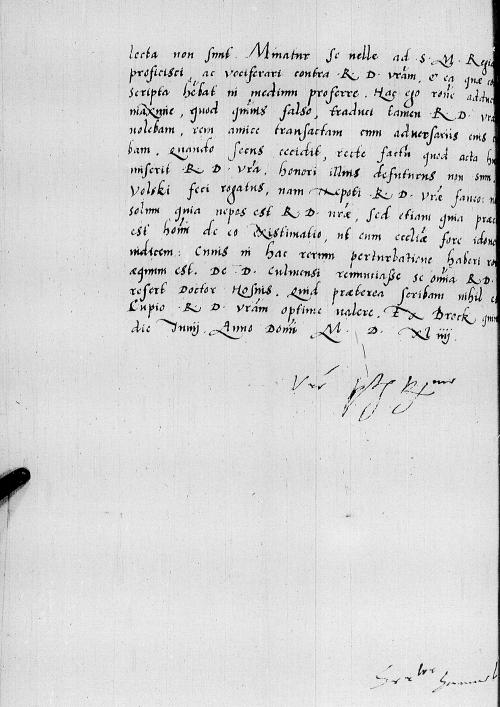 lecta non sunt. Minatur se velle ad S. M. Regia
proficisci, ac vociferari contra R. D. vrām, & ea quæ
scripta hēbat in medium proferre. Hac ego rōne adduc
maxime, quod quāvis falso, traduci tamen R. D. vrā
nolebam, rem amice transactam cum adversariis eius
bam. Quando secus cecidit, recte factū quod acta
miserit R. D. vrā. honori illius defuturus non sum
Volski feci rogatus, nam Nepoti R. D. vræ faveo: n
solum quia nepos est R. D. vræ, sed etiam quia præc
est hōīm de eo existimatio, ut eum eccliæ fore idone
iudicem: Cuius in hac rerum perturbatione haberi
æquum est. De D. Culmensi renunciasse se oīa R. D.
refert Doctor Hosius. Quid præterea scribam nihil
Cupio R. D. vrām optime valere. Ex Brock
die Junij. Anno Domī M. D. XLiiij.